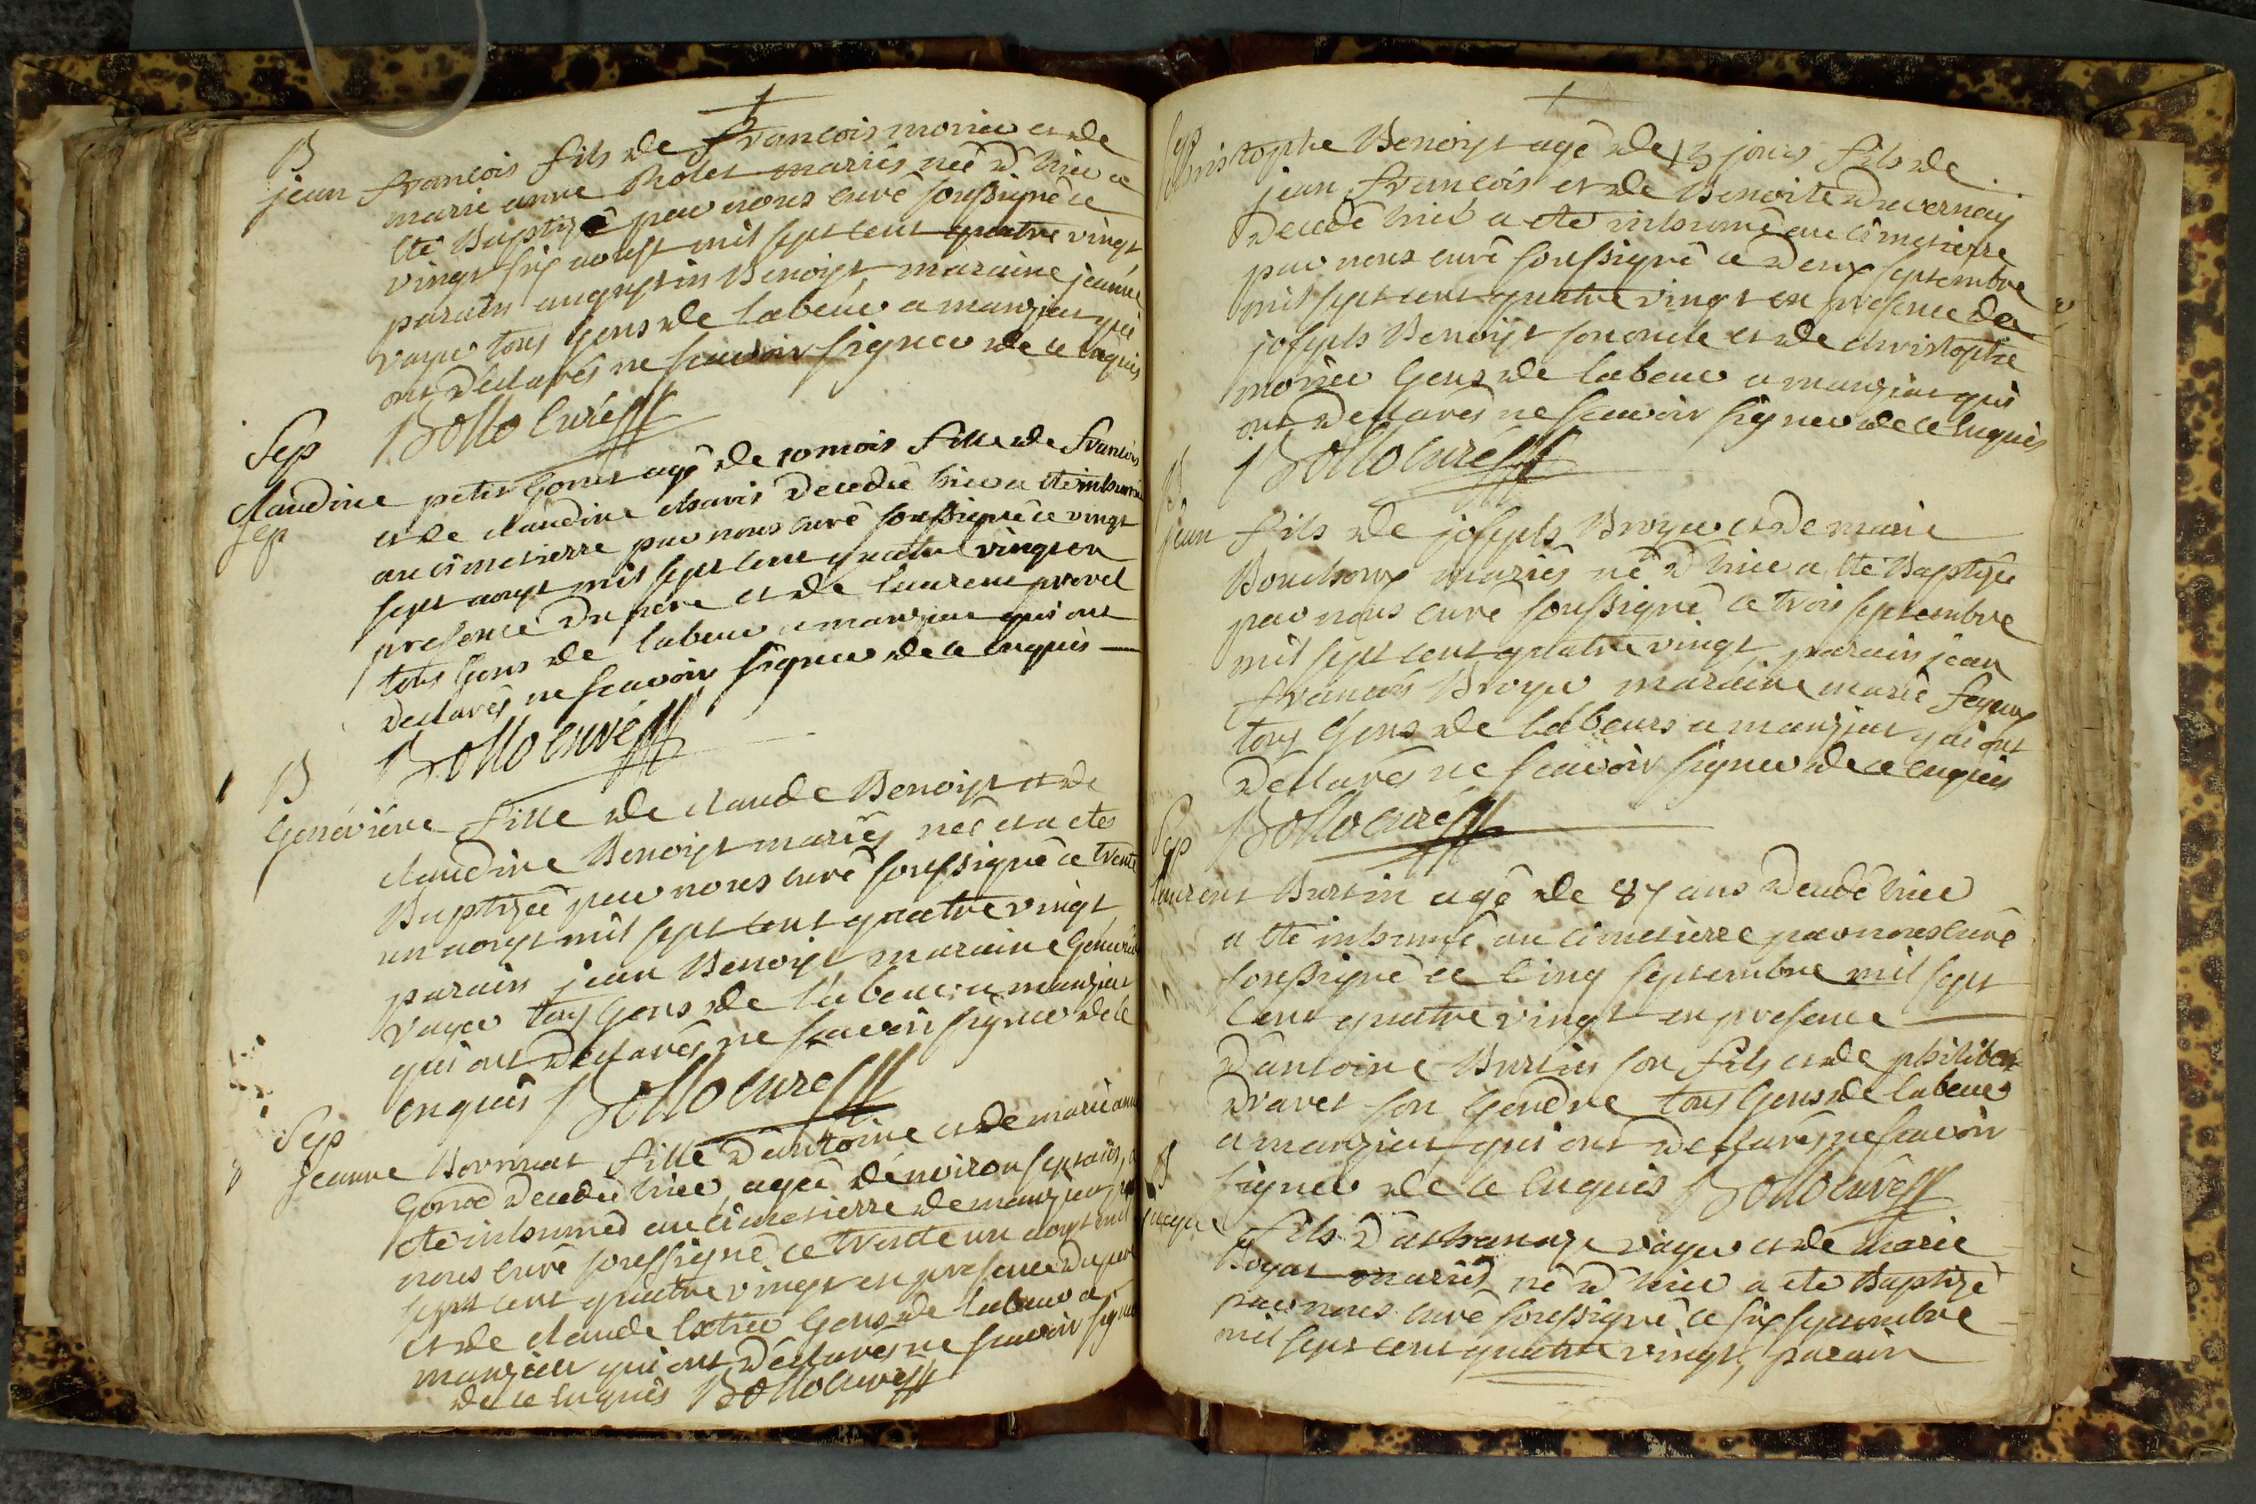 B
jean francois fils de francois morier et de
marie anne Rolet mariés neê d'hier a
été Baptizé par nous curé soussigné ce
vingt six aoust mil sept cent quatre vingt
parain augustin Benoist maraine jeanne
vayer tous Gens de labeur a manziat qui
ont declarés ne scavoir signer de ce enquis
Bollo curé
Sep
Claudine petit Gonet agé de 10 mois fille de francois
Sep
et de claudine chavis decedée hier a été inhumé
au cimetierre par nous curé soussigné ce vingt
sept aoust mil sept cent quatre vingt en
presence du pere et de laurent provet
tous Gens de labeur a manziat qui ont
declarés ne scavoir signer de ce enquis
Bollo curé
B
Genevieve fille de claude Benoist et de
claudine Benoist mariés neé et a eté
Baptizée par nous curé soussigné ce trente
un aoust mil sept cent quatre vingt
parain jean Benoist maraine Genevieve
vayer tous Gens de labeur a manziat
qui ont declarés ne scavoir signer de ce
enquis Bollo curé
Sep
Jeanne Bornat fille d'antoine et de marie anne
Gonod decedée hier ageé d'environ sept ans, a
eté inhumed au cimetierre de manziat par
nous curé soussigné ce trente un aoust mil
sept cent quatre vingt en presence du pere
et de claude Extrier Gens de labeur a
manziat qui ont declarés ne scavoir signer
de ce enquis Bollo curé
Sep
Christophe Benoist agé de 13 jours fils de
jean francois et de Benoite Duvernay
decedé hier a eté inhumé au cimetierre
par nous curé soussigné ce deux septembre
mil sept cent quatre vingt en presence de
joseph Benoist son oncle et de christophe
morier Gens de labeur a manziat qui
ont declarés ne scavoir signer de ce enquis
Bollo curé
B
jean fils de joseph Broyer et de marie
Bouchoux mariés né d'hier a été Baptizée
par nous curé soussigné ce trois septembre
mil sept cent quatre vingt parain jean
francois Broyer maraine marie feyeux
tous Gens de labeurs a manziat qui ont
declarés ne scavoir signer de ce enquis
Bollo curé
Sep
laurent Burtin agé de 87 ans decedé hier
a été inhumé au cimetierre par nous curé
soussigné ce cinq septembre mil sept
cent quatre vingt en presence
d'antoine Burtin son fils et de philibert
Dravet son Gendre tous Gens de labeur
a manziat qui ont declarés ne scavoir
signer de ce enquis Bollo curé
B
fils d'athanaze vayer et de marie
Boyat mariés né d'hier a eté Baptizé
par nous curé soussigné ce six septembre
mil sept cent quatre vingt, parain